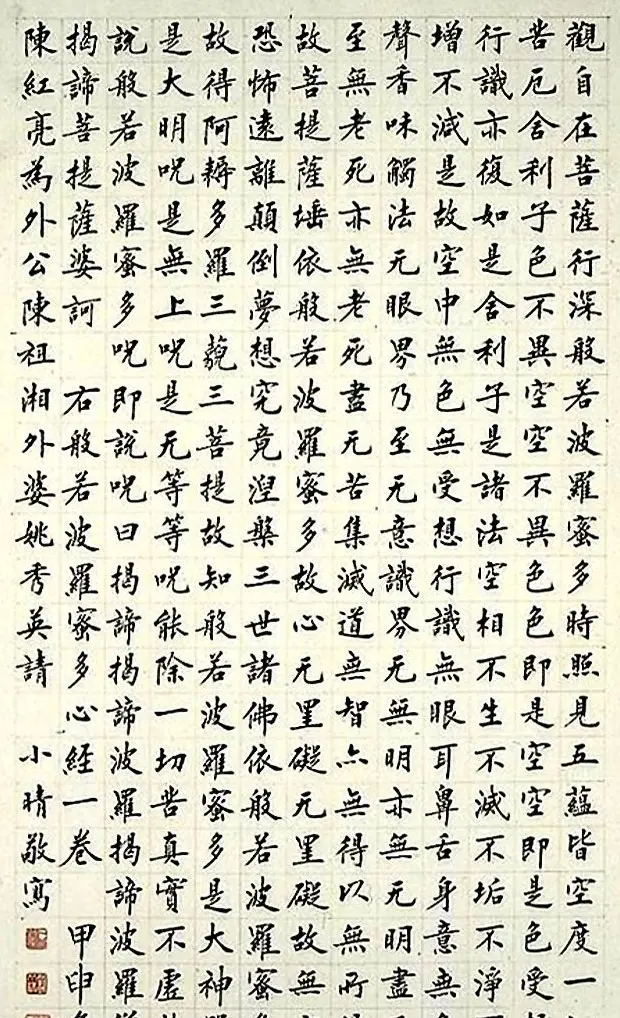 觀自在菩薩行深般若波羅蜜多時照見五蘊皆空度一
苦厄舍利子色不異空空不異色色即是空空即是色受
行識亦復如是舍利子是諸法空相不生不滅不垢不淨
增不減是故空中無色無受想行識無眼耳鼻舌身意無
聲香味觸法无眼界乃至无意識界无無明亦無无明盡
至無老死亦無老死盡无苦集滅道無智亦無得以無所
故菩提薩埵依般若波羅蜜多故心无罣礙无罣礙故無
恐怖遠離顛倒夢想究竟涅槃三世諸佛依般若波羅蜜
故得阿耨多羅三藐三菩提故知般若波羅蜜多是大神
是大明呪是無上呪是无等等呪能除一切苦真實不虛
說般若波羅蜜多呪即說呪曰揭諦揭諦波羅揭諦波羅
揭諦菩提薩婆訶 右般若波羅蜜多心經一卷 甲申
陳紅亮為外公陳祖湘外婆姚秀英請 小晴敬寫